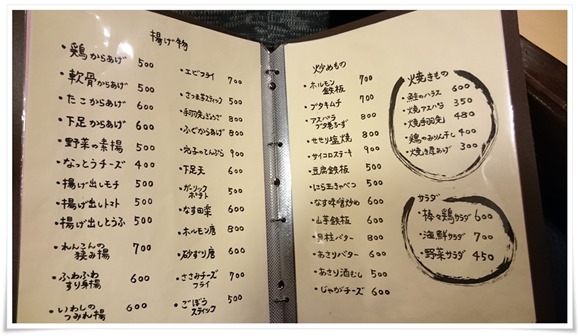 揚げ物
・鶏からあげ 500
・軟骨からあげ 500
・たこからあげ 600
・下足からあげ 600
・野菜の素揚 500
・なっとうチーズ 400
・揚げ出しモチ 500
・揚げ出しトマト 500
・揚げ出しとうふ 500
・れんこんの
挟み揚 700
・ふわふわ
すり身揚 600
・いわしの
つみれ揚 600
・エビフライ 700
・さつま芋スティック 500
・手羽先ぎょうざ 800
・ふぐからあげ 800
900
・下足天 600
・ガーリック
ポテト 500
・なす田楽 600
・ホルモン唐 800
・砂ずり唐 600
・ささみチーズ
フライ 700
・ごぼう
スティック 500
炒めもの
・ホルモン
鉄板 700
・ブタキムチ 700
・アスパラ
800
・せせり塩焼 800
・サイコロステーキ 900
・豆腐鉄板 500
・にら玉きゃべつ 500
・なす味噌炒め 600
・山芋鉄板 600
・貝柱バター 800
・あさりバター 600
・あさり酒むし 500
・じゃがチーズ 600
焼きもの
・鮭のハラス 600
・焼アスパラ 350
・焼手羽先 480
・鶏のみりん干し 400
・焼き厚あげ 300
サラダ
・棒々鶏サラダ 600
・海鮮サラダ 700
・野菜サラダ 450